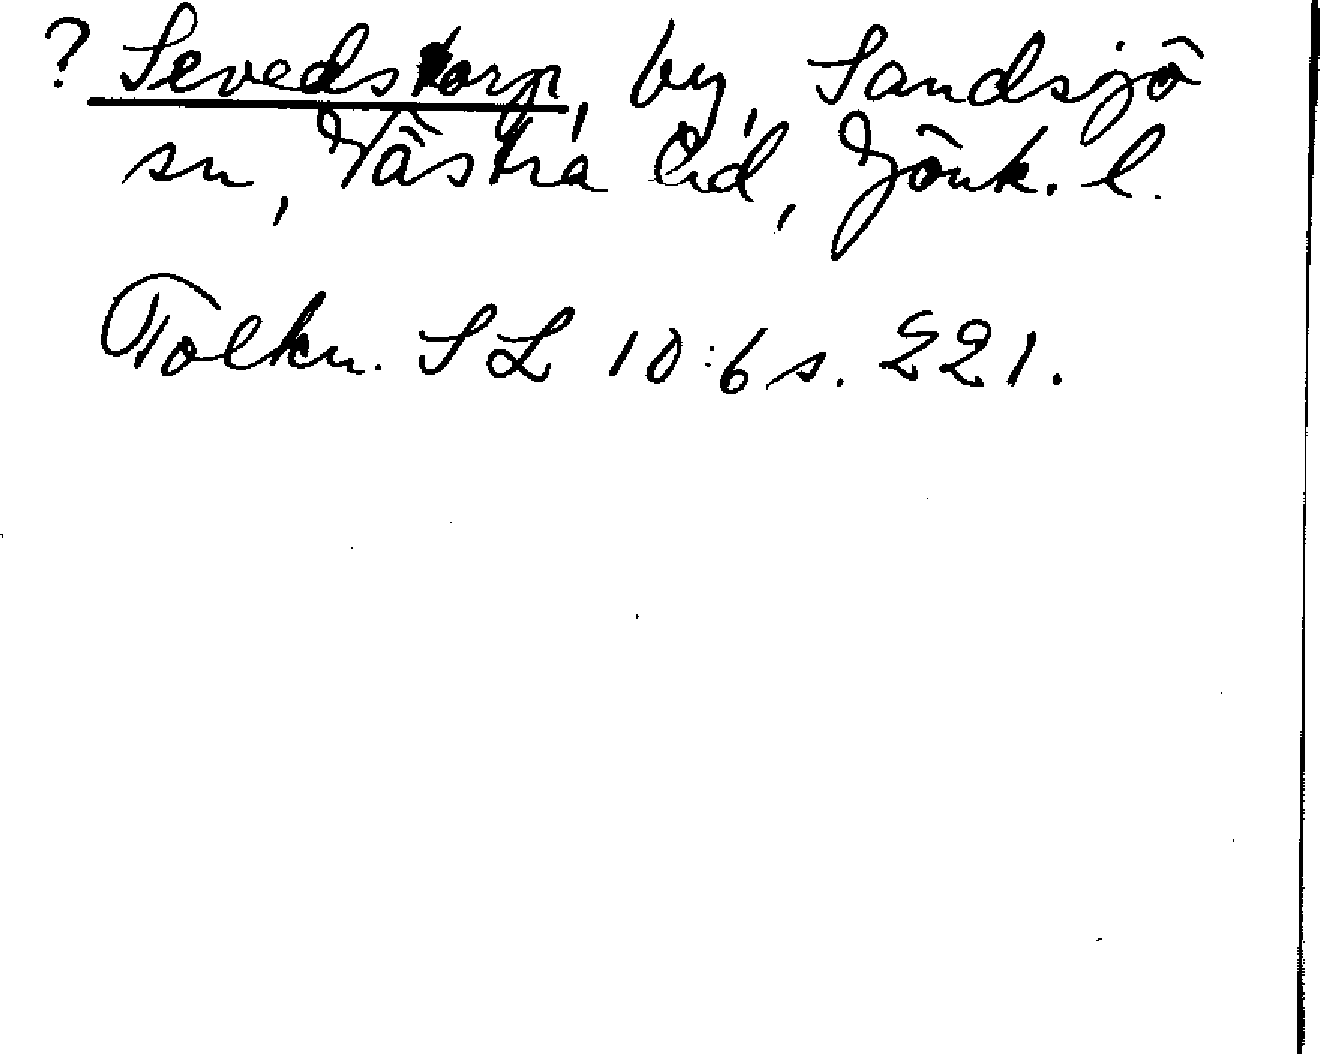 ? Sevedstorp, by, Sandsjö
sn, Västra hd, Jönk. l.
Tolkn. SL 10:6 s. 221.